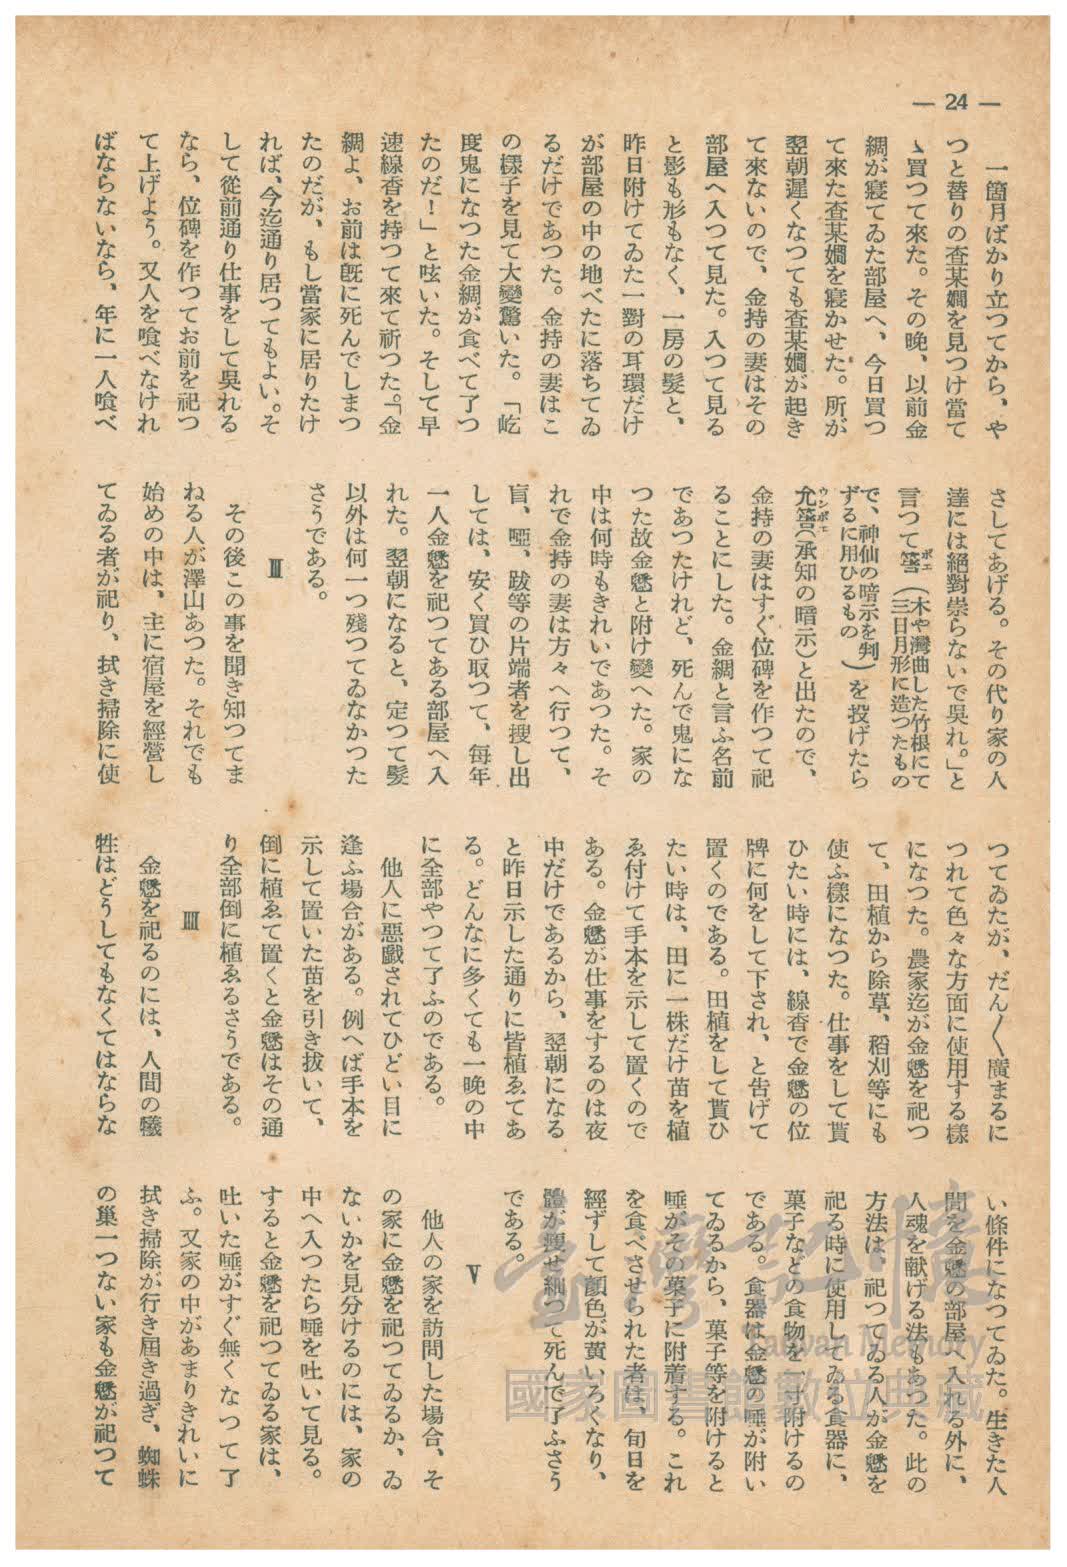 — 24 —
一箇月ばかり立つてから、や
つと替りの査某嫺を見つけ當て
ゝ買つて來た。その晩、以前金
綢が寢てゐた部屋へ、今日買つ
て來た査某嫺を寢かせた。所が
翌朝遲くなつても査某嫺が起き
て來ないので、金持の妻はその
部屋へ入つて見た。入つて見る
と影も形もなく、一房の髮と、
昨日附けてゐた一對の耳環だけ
が部屋の中の地べたに落ちてゐ
るだけであつた。金持の妻はこ
の樣子を見て大變驚いた。「屹
度鬼になつた金綢が食べて了つ
たのだ！」と呟いた。そして早
速線香を持つて來て祈つた。「金
綢よ、お前は旣に死んでしまつ
たのだが、もし當家に居りたけ
れば、今迄通り居つてもよい。そ
して從前通り仕事をして吳れる
なら、位碑を作つてお前を祀つ
て上げよう。又人を喰べなけれ
ばならないなら、年に一人喰べ
さしてあげる。その代り家の人
達には絕對祟らないで吳れ。」と
言つて筶（木や灣曲した竹根にて三日月形に造つたもの
ポエ
で、神仙の暗示を判ずるに用ひるもの）を投げたら
允筶（承知の暗示）と出たので、
ウンポエ
金持の妻はすぐ位碑を作つて祀
ることにした。金綢と言ふ名前
であつたけれど、死んで鬼にな
つた故金魃と附け變へた。家の
中は何時もきれいであつた。そ
れで金持の妻は方々へ行つて、
盲、啞、跛等の片端者を搜し出
しては、安く買ひ取つて、每年
一人金魃を祀つてある部屋へ入
れた。翌朝になると、定つて髮
以外は何一つ殘つてゐなかつた
さうである。
Ⅲ
その後この事を聞き知つてま
ねる人が澤山あつた。それでも
始めの中は、主に宿屋を經營し
てゐる者が祀り、拭き掃除に使
つてゐたが、だん〱廣まるに
つれて色々な方面に使用する樣
になつた。農家迄が金魃を祀つ
て、田植から除草、稻刈等にも
使ふ樣になつた。仕事をして貰
ひたい時には、線香で金魃の位
牌に何をして下され、と告げて
置くのである。田植をして貰ひ
たい時は、田に一株だけ苗を植
ゑ付けて手本を示して置くので
ある。金魃が仕事をするのは夜
中だけであるから、翌朝になる
と昨日示した通りに皆植ゑてあ
る。どんなに多くても一晩の中
に全部やつて了ふのである。
他人に惡戲されてひどい目に
逢ふ場合がある。例へば手本を
示して置いた苗を引き拔いて、
倒に植ゑて置くと金魃はその通
り全部倒に植ゑるさうである。
Ⅲ
金魃を祀るのには、人間の犧
牲はどうしてもなくてはならな
い條件になつてゐた。生きた人
間を金魃の部屋へ入れる外に、
人魂を獻げる法もあつた。此の
方法は、祀つてゐる人が金魃を
祀る時に使用してゐる食器に、
菓子などの食物を一寸附けるの
である。食器は金魃の唾が附い
てゐるから、菓子等を附けると
唾がその菓子に附着する。これ
を食べさせられた者は、旬日を
經ずして顏色が黃いろくなり、
體が瘦せ細つて死んで了ふさう
である。
Ⅴ
他人の家を訪問した場合、そ
の家に金魃を祀つてゐるか、ゐ
ないかを見分けるのには、家の
中へ入つたら唾を吐いて見る。
すると金魃を祀つてゐる家は、
吐いた唾がすぐ無くなつて了
ふ。又家の中があまりきれいに
拭き掃除が行き屆き過ぎ、蜘蛛
の巢一つない家も金魃が祀つて
臺灣記憶
Taiwan Memory
國家圖書館數位典藏